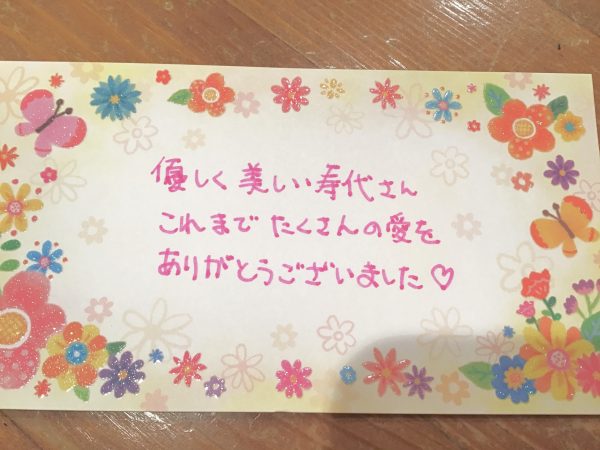 優しく美しい寿代さん
これまでたくさんの愛を
ありがとうございました♡